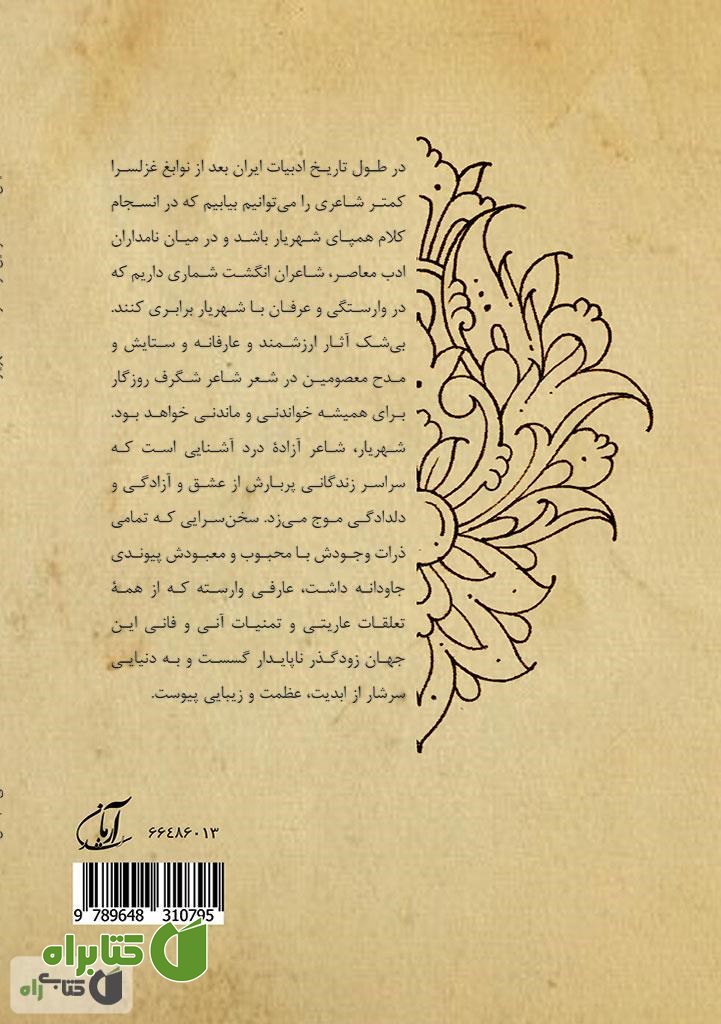 در طول تاریخ ادبیات ایران بعد از نوابغ غزلسرا
کمتر شاعری را می‌توانیم بیابیم که در انسجام
کلام همپای شهریار باشد و در میان نامداران
ادب معاصر، شاعران انگشت شماری داریم که
در وارستگی و عرفان با شهریار برابری کنند.
بی‌شک آثار ارزشمند و عارفانه و ستایش و
مدح معصومین در شعر شاعر شگرف روزگار
برای همیشه خواندنی و ماندنی خواهد بود.
شهریار، شاعر آزادهٔ درد آشنایی است که
سراسر زندگانی پربارش از عشق و آزادگی و
دلدادگی موج می‌زد. سخن‌سرایی که تمامی
ذرات وجودش با محبوب و معبودش پیوندی
جاودانه داشت، عارفی وارسته که از همهٔ
تعلقات عاریتی و تمنیات آنی و فانی این
جهان زودگذر ناپایدار گسست و به دنیایی
سرشار از ابدیت، عظمت و زیبایی پیوست.
آرمان
۶۶۴۸۶۰۱۳
9 789648 310795
کتابراه
کتابراه